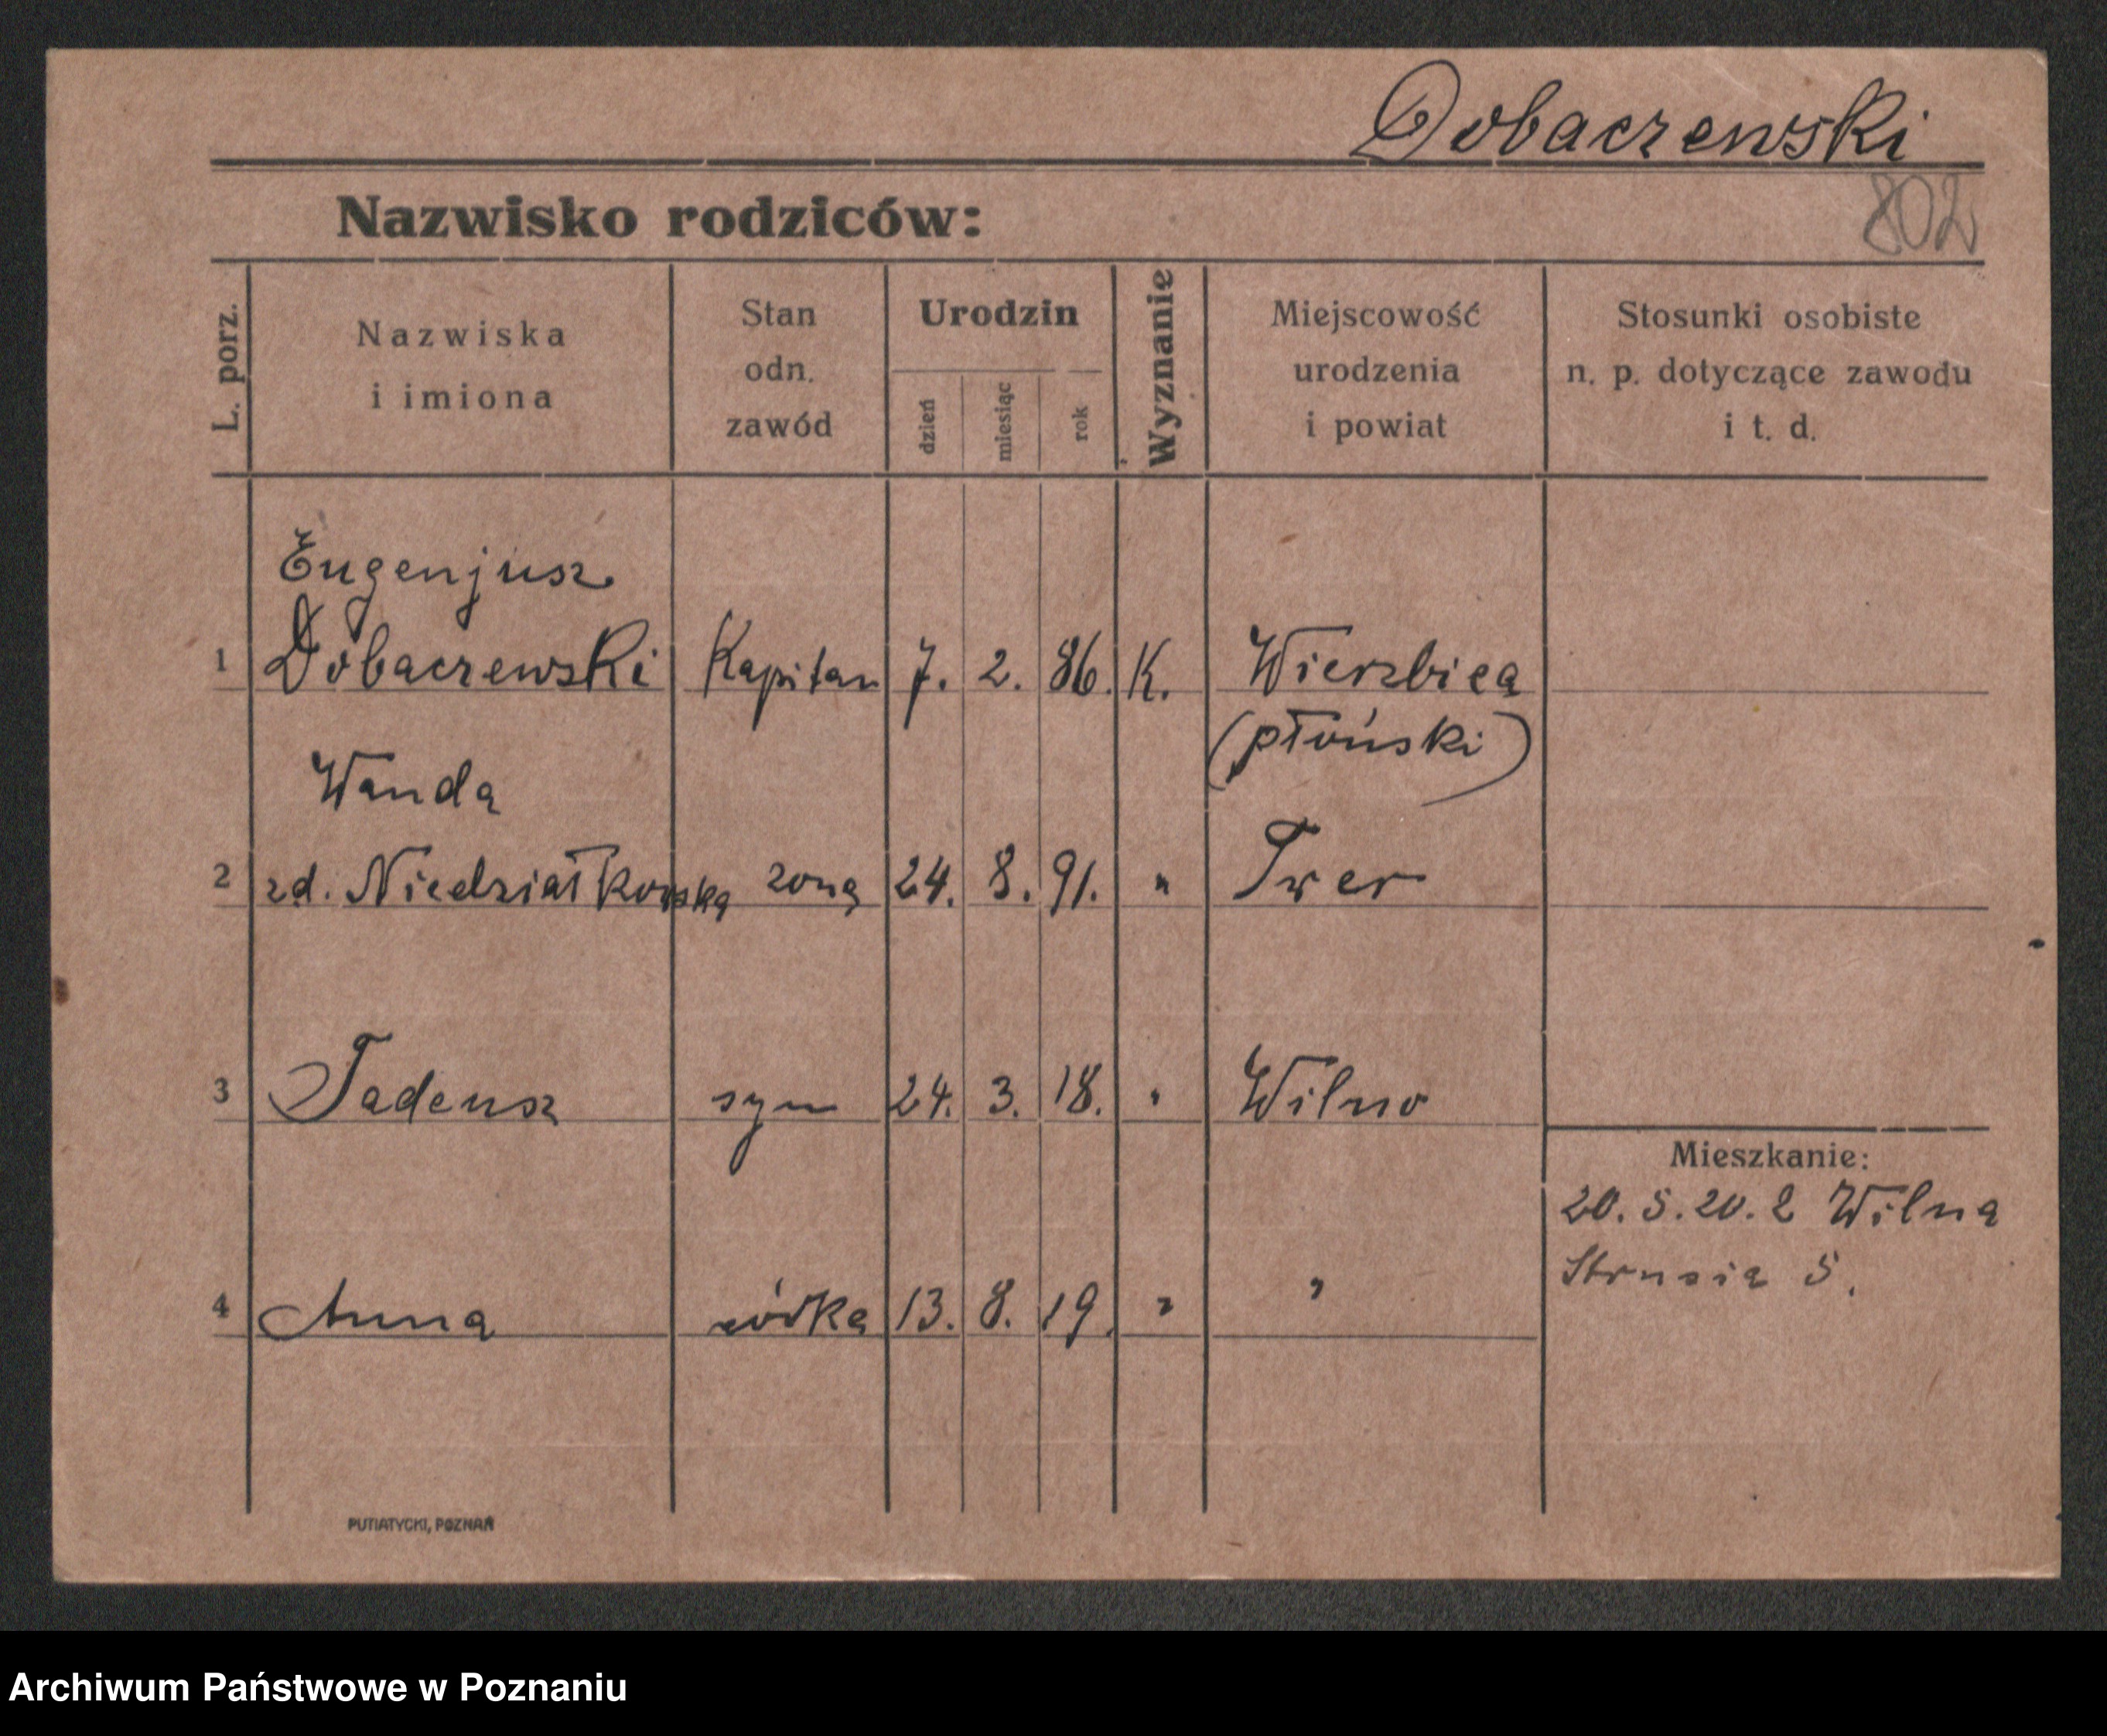 Dobaczewski
802
Nazwisko rodziców:
L. porz.
Nazwiska
i imiona
Stan
odn.
zawód
Urodzin
dzień
miesiąc
rok
Wyznanie
Miejscowość
urodzenia
i powiat
Stosunki osobiste
n. p. dotyczące zawodu
i t. d.
Eugenjusz
1 Dobaczewski Kapitan 7. 2. 86. K. Wierzbica
(płoński)
Wanda
2 zd. Niedziałkowska żona 24. 8. 91. " Twer
3 Tadeusz syn 24. 3. 18. " Wilno
4 Anna córka 13. 8. 19. " "
Mieszkanie:
20. 5. 20. z Wilna
Strusia 5.
PUTIATYCKI, POZNAŃ
Archiwum Państwowe w Poznaniu